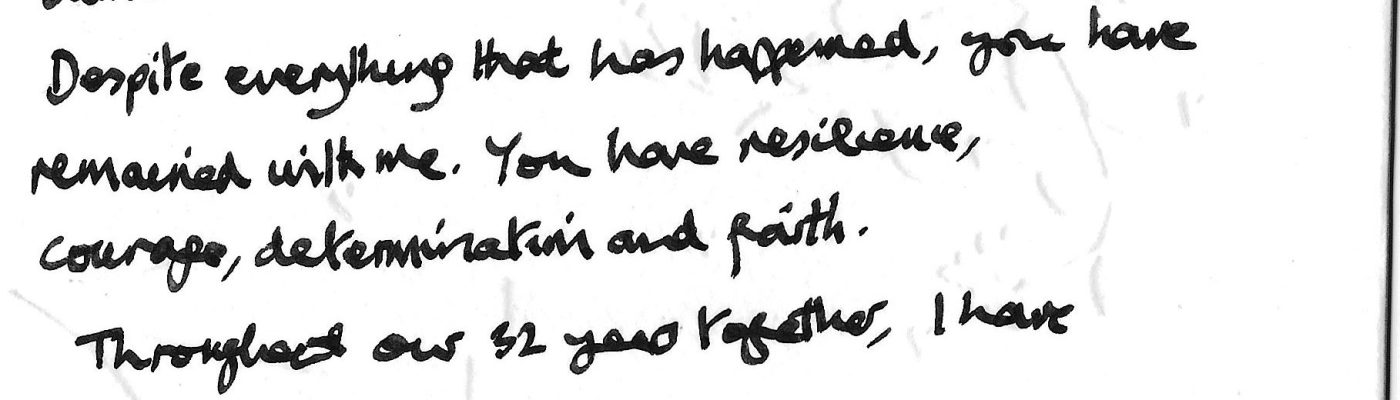 Despite everything that has happened, you have
remained with me. You have resilience,
courage, determination and faith.
Throughout our 32 years together, I have